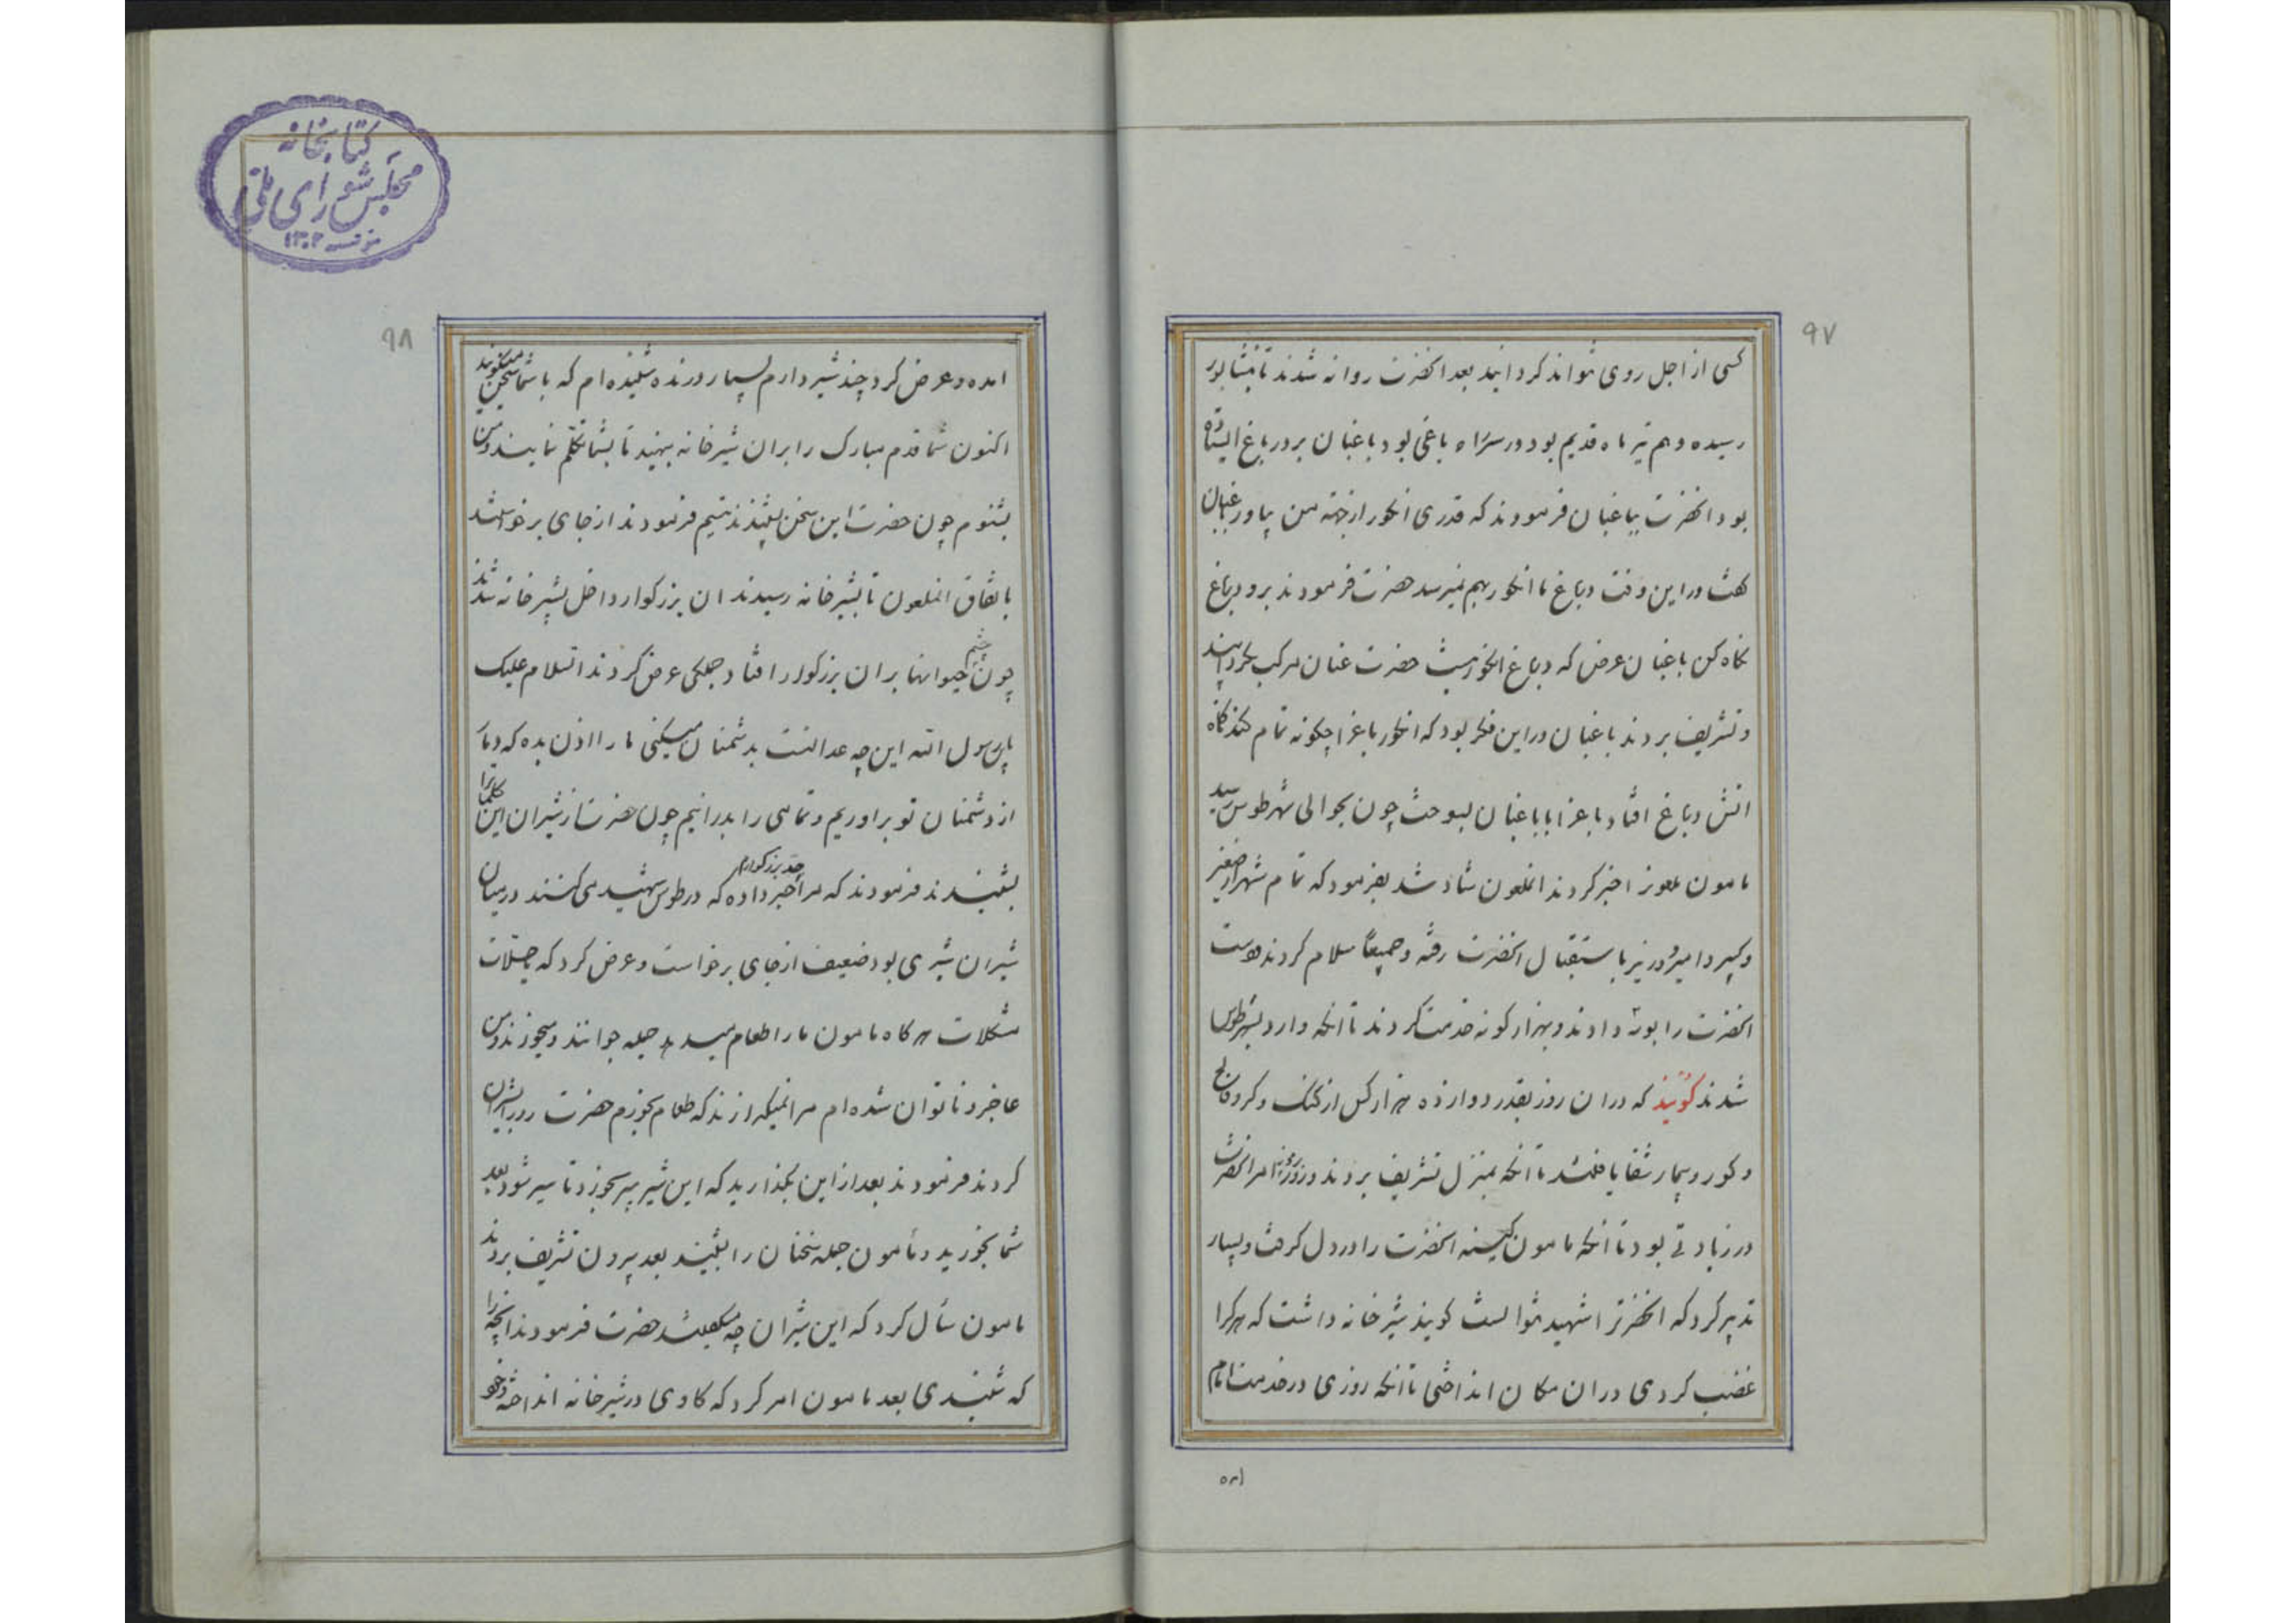 ۹۷
کسی از اجل روی نتواند کردانید بعد انحضرت روانه شدند تا نیشابور
رسیده و هم تیر ماه قدیم بود در سر راه باغی بود باغبان بر در باغ ایستاده
بود انحضرت بباغبان فرمودند که قدری انکور از جهته من بیاور باغبان
کفت در این وقت در باغ ما انکور بهم نمیرسد حضرت فرمودند برو در باغ
نکاه کن باغبان عرض که در باغ انکور نیست حضرت عنان مرکب بکردانیند
و تشریف بردند باغبان در این فکر بود که انکور باغرا چکونه تمام کند ناکاه
اتش در باغ افتاد باغرا با باغبان بسوخت چون بحوالی شهر طوس رسید
مامون ملعونرا خبر کردند انملعون شاد شد بفرمود که تمام شهر از صغیر
و کبیر و امیر و وزیر باستقبال انحضرت رفته و جمیعا سلام کردند دست
انحضرت را بوسه دادند و بهزار کونه خدمت کردند تا انکه وارد شهر طوس
شدند کویند که در ان روز بقدر دوازده هزار کس از کنک و کر و فالج
و کور و بیمار شفا یافتند تا انکه بمنزل تشریف بردند و روز بروز امر انحضرت
در زیادتی بود تا انکه مامون کینه انحضرت را در دل کرفت و بسیار
تدبیر کرد که انحضرترا شهید نتوانست کویند شیرخانه داشت که هرکرا
غضب کردی در ان مکان انداختی تا انکه روزی در خدمت امام
امده
۹۸
امده و عرض کرد چند شیر دارم بسیار درنده شنیده ام که با شما سخن میکویند
اکنون شما قدم مبارک را بران شیرخانه بنهید تا بشما تکلم نمایند و من
بشنوم چون حضرت این سخن بشنیدند تبسم فرمودند از جای برخواستند
باتفاق انملعون تا بشیرخانه رسیدند ان بزرکوار داخل بشیرخانه شدند
چون چشم حیوانها بران بزرکوار افتاد جملکی عرض کردند السلام علیک
یابن رسول الله این چه عدالتست بدشمنان میکنی ما را اذن بده که دمار
از دشمنان تو براوریم و تمامی را بدرانیم چون حضرت از شیران این کلمات را
بشنیدند فرمودند که مرا جد بزرکوارم خبر داده که در طوس شهید می کنند در میان
شیران شیری بود ضعیف از جای برخواست و عرض کرد که یا حلال
مشکلات هر کاه مامون ما را طعام میدهد جمله جوانند و میخورند و من
عاجز و ناتوان شده ام مرا نمیکذارند که طعام بخورم حضرت رو بر شیران
کردند فرمودند بعد از این بکذارید که این شیر پیر بخورد تا سیر شود بعد
شما بخورید و مامون جمله سخنان را بشنید بعد بیرون تشریف بردند
مامون سأل کرد که این شیران چه میکفتند حضرت فرمودند انچه را
که شنیدی بعد مامون امر کرد که کاوی در شیرخانه انداختند و خود
کتابخانه
مجلس شورای ملی
مؤسسه ۱۳۰۲